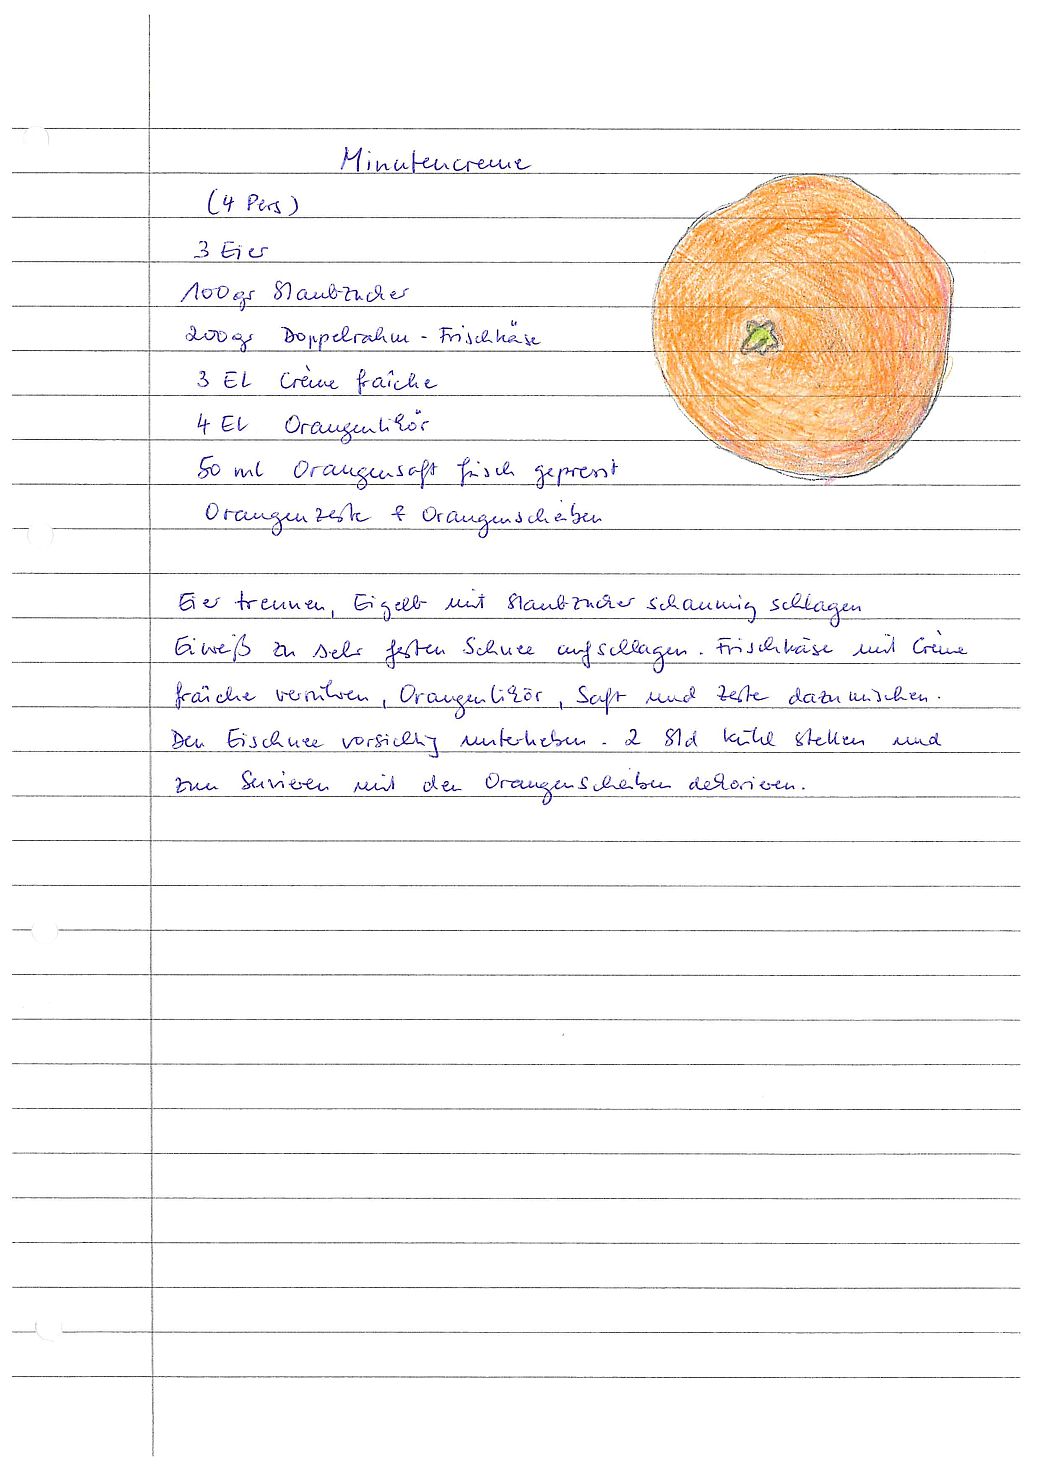 Minutencreme
(4 Pers)
3 Eier
100gr Staubzucker
200gr Doppelrahm - Frischkäse
3 EL Crème fraîche
4 EL Orangenlikör
50 ml Orangensaft frisch gepresst
Orangenzeste + Orangenscheiben
Eier trennen, Eigelb mit Staubzucker schaumig schlagen
Eiweiß zu sehr festen Schnee aufschlagen. Frischkäse mit Crème
fraîche verrühren, Orangenlikör, Saft und Zeste dazumischen.
Den Eischnee vorsichtig unterheben. 2 Std kühl stellen und
zum Servieren mit den Orangenscheiben dekorieren.